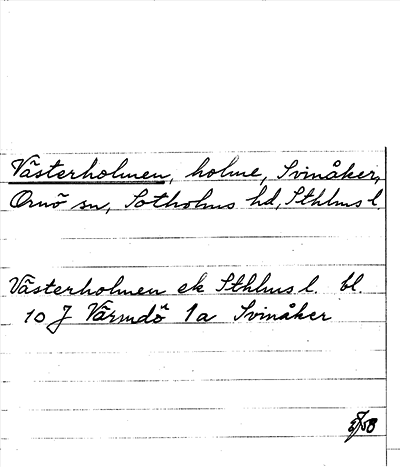 Västerholmen, holme, Svinåker,
Ornö sn, Sotholms hd, Sthlms l.
Västerholmen ek Sthlms l. bl.
10 J Värmdö 1a Svinåker